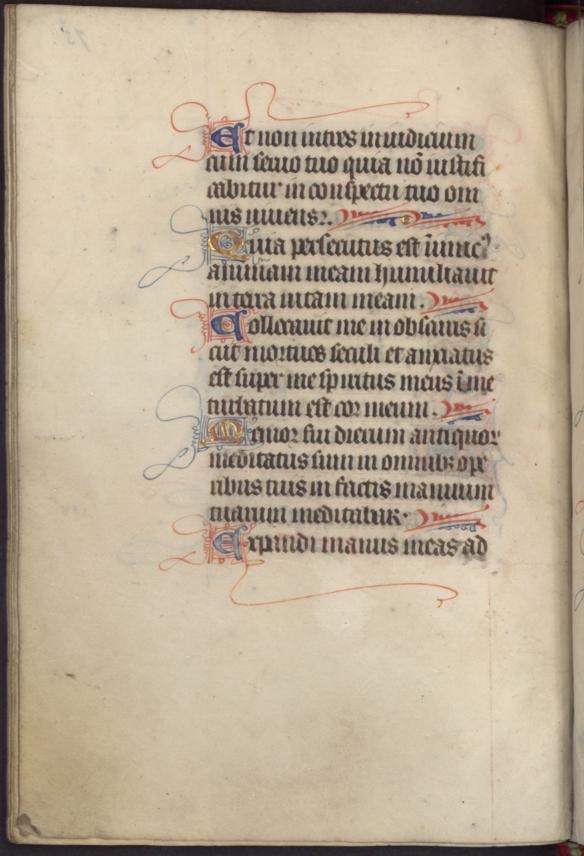 Et non intres in iudicium
cum seruo tuo quia nō iustifi
cabitur in conspectu tuo om
nis uiuens.
Quia persecutus est inimicꝰ
animam meam humiliauit
in terra uitam meam.
Collocauit me in obscuris si
cut mortuos seculi et anxiatus
est super me spiritus meus ī me
turbatum est cor meum.
Memor fui dierum antiquor
meditatus sum in omnibꝫ ope
ribus tuis in factis manuum
tuarum meditabar.
Expandi manus meas ad